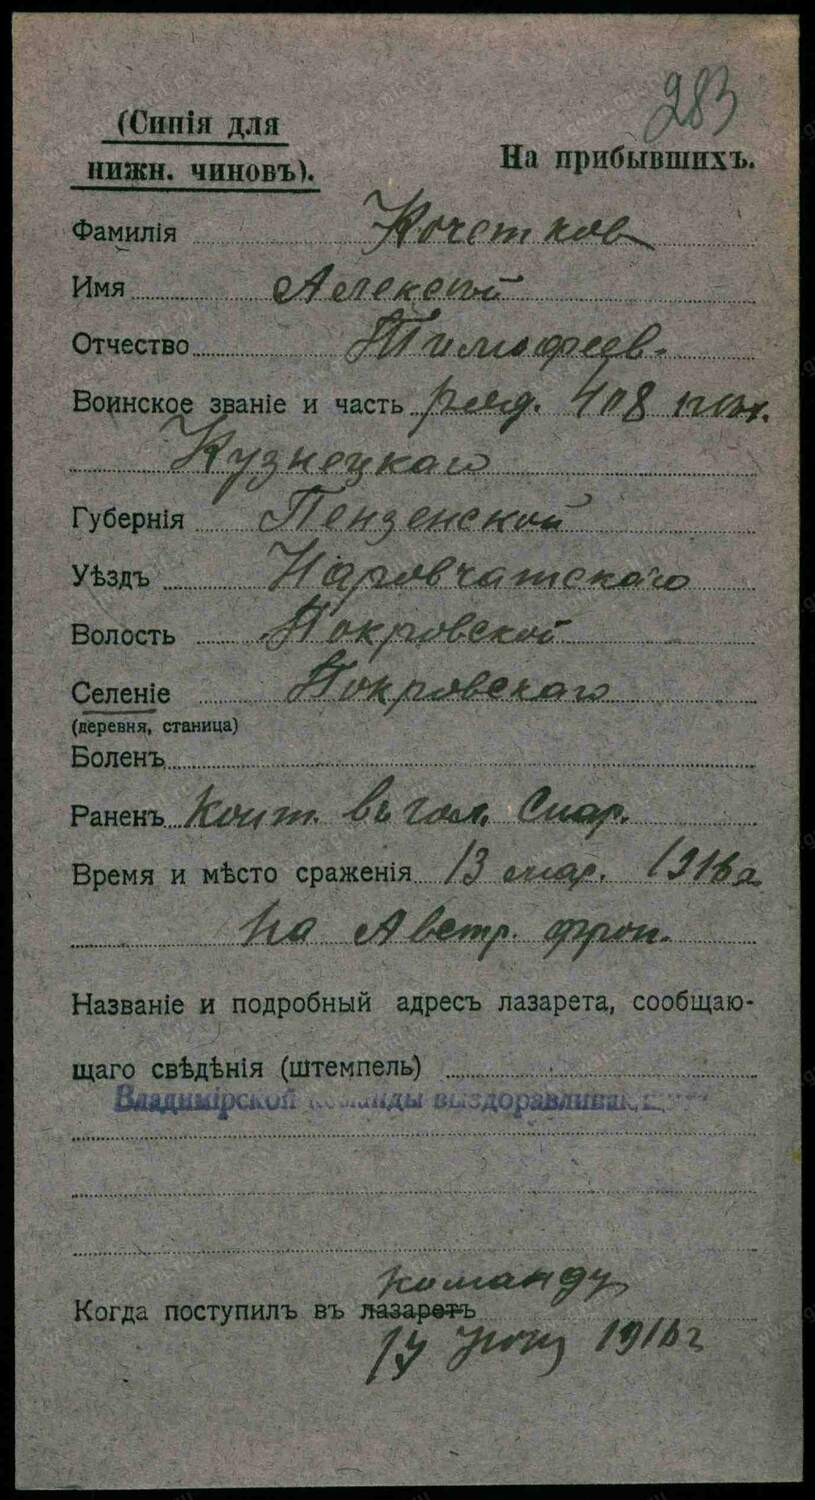 283
(Синія для
нижн. чиновъ).
На прибывшихъ.
Фамилія Кочетков
Имя Алексѣй
Отчество Тимофеев.
Воинское званіе и часть ряд. 408 пѣх.
Кузнецкаго
Губернія Пензенской
Уѣздъ Наровчатскаго
Волость Покровской
Селеніе Покровскаго
(деревня, станица)
Боленъ
Раненъ Конт. въ гол. Снар.
Время и мѣсто сраженія 13 мар. 1916 г
На Австр. фрон.
Названіе и подробный адресъ лазарета, сообщаю-
щаго свѣдѣнія (штемпель)
Владимірской команды выздоравливающихъ
команду
Когда поступилъ въ лазаретъ
17 Іюня 1916 г